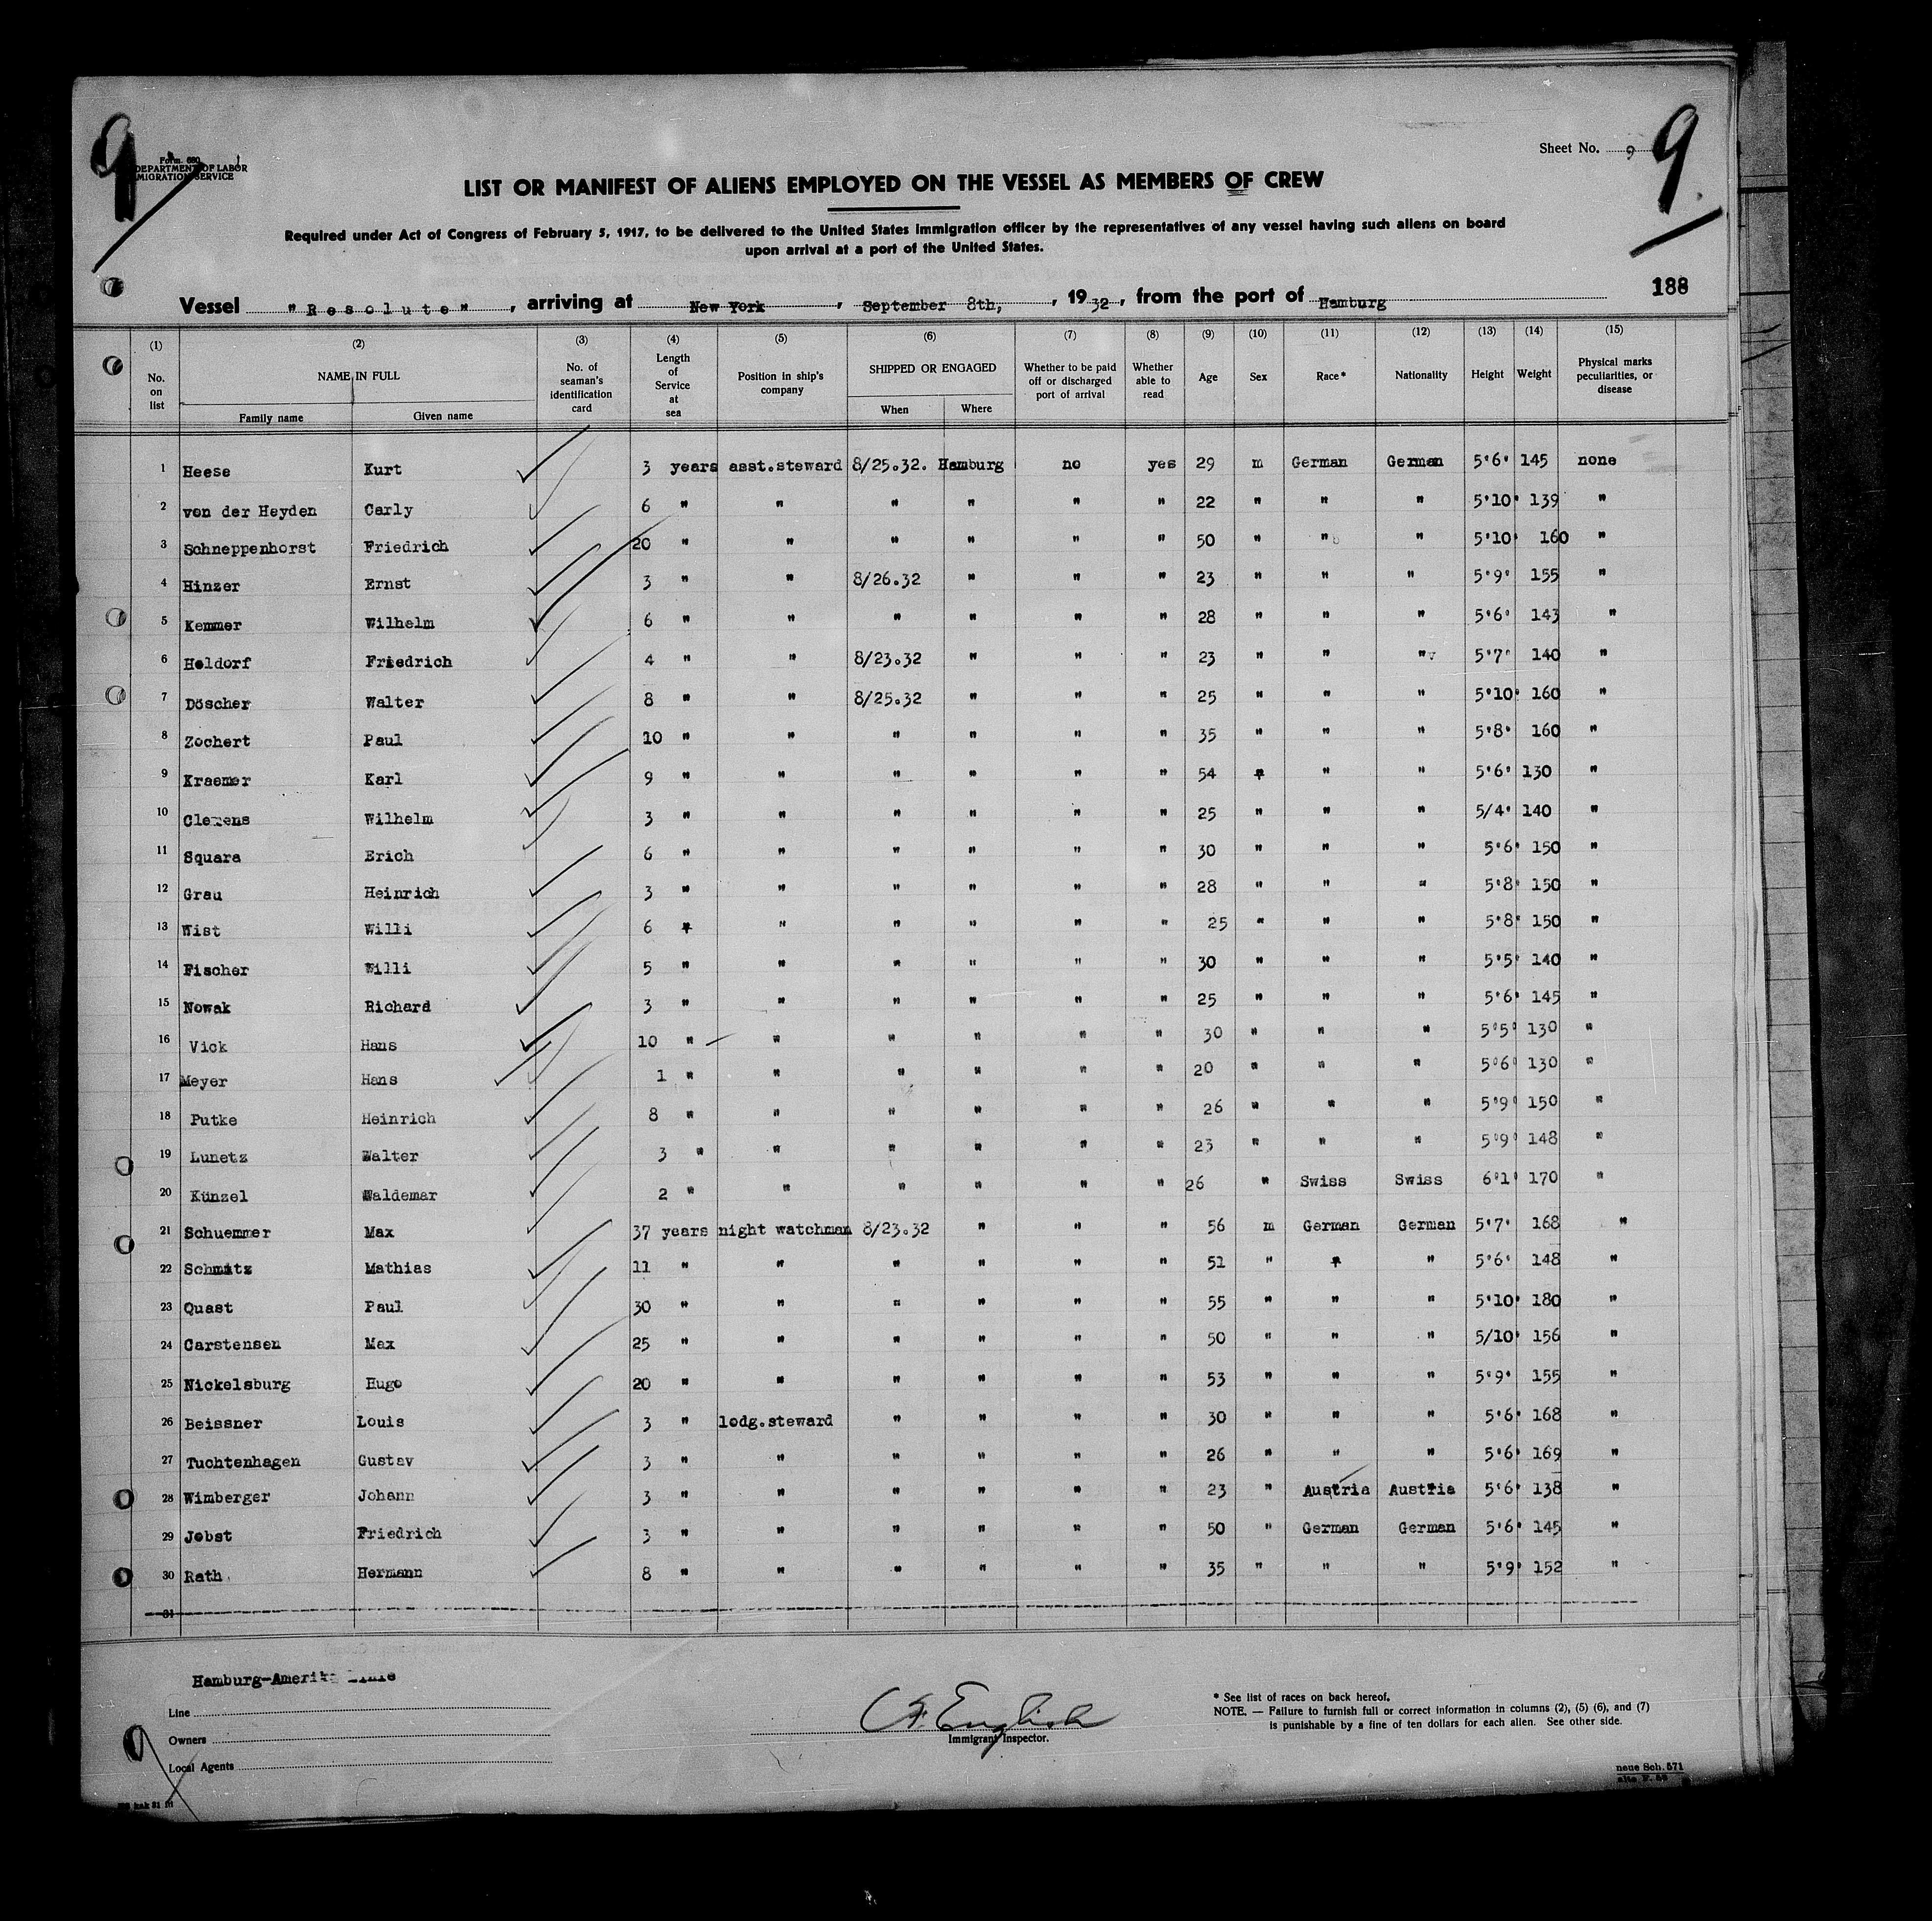 9
Form 680
DEPARTMENT OF LABOR
MIGRATION SERVICE
Sheet No. 9
9
LIST OR MANIFEST OF ALIENS EMPLOYED ON THE VESSEL AS MEMBERS OF CREW
Required under Act of Congress of February 5, 1917, to be delivered to the United States immigration officer by the representatives of any vessel having such aliens on board
upon arrival at a port of the United States.
188
Vessel "Resolute", arriving at New York, September 8th, , 1932, from the port of Hamburg
(1) No. on list (2) NAME IN FULL Family name Given name (3) No. of seaman's identification card (4) Length of Service at sea (5) Position in ship's company (6) SHIPPED OR ENGAGED When Where (7) Whether to be paid off or discharged port of arrival (8) Whether able to read (9) Age (10) Sex (11) Race* (12) Nationality (13) Height (14) Weight (15) Physical marks peculiarities, or disease
1 Heese Kurt 3 years asst.steward 8/25.32. Hamburg no yes 29 m German German 5'6" 145 none
2 von der Heyden Carly 6 " " " " " " 22 " " " 5'10" 139 "
3 Schneppenhorst Friedrich 20 " " " " " " 50 " " " 5'10" 160 "
4 Hinzer Ernst 3 " " 8/26.32 " " " 23 " " " 5'9" 155 "
5 Kemmer Wilhelm 6 " " " " " " 28 " " " 5'6" 143 "
6 Holdorf Friedrich 4 " " 8/23.32 " " " 23 " " " 5'7" 140 "
7 Döscher Walter 8 " " 8/25.32 " " " 25 " " " 5'10" 160 "
8 Zochert Paul 10 " " " " " " 35 " " " 5'8" 160 "
9 Kraemer Karl 9 " " " " " " 54 " " " 5'6" 130 "
10 Clemens Wilhelm 3 " " " " " " 25 " " " 5/4" 140 "
11 Squara Erich 6 " " " " " " 30 " " " 5'6" 150 "
12 Grau Heinrich 3 " " " " " " 28 " " " 5'8" 150 "
13 Wist Willi 6 " " " " " " 25 " " " 5'8" 150 "
14 Fischer Willi 5 " " " " " " 30 " " " 5'5" 140 "
15 Nowak Richard 3 " " " " " " 25 " " " 5'6" 145 "
16 Vick Hans 10 " " " " " " 30 " " " 5'5" 130 "
17 Meyer Hans 1 " " " " " " 20 " " " 5'6" 130 "
18 Putke Heinrich 8 " " " " " " 26 " " " 5'9" 150 "
19 Lunetz Walter 3 " " " " " " 23 " " " 5'9" 148 "
20 Künzel Waldemar 2 " " " " " " 26 " Swiss Swiss 6'1" 170 "
21 Schuemmer Max 37 years night watchman 8/23.32 " " " 56 m German German 5'7" 168 "
22 Schmitz Mathias 11 " " " " " " 51 " " " 5'6" 148 "
23 Quast Paul 30 " " " " " " 55 " " " 5'10" 180 "
24 Carstensen Max 25 " " " " " " 50 " " " 5/10" 156 "
25 Nickelsburg Hugo 20 " " " " " " 53 " " " 5'9" 155 "
26 Beissner Louis 3 " lodg.steward " " " " 30 " " " 5'6" 168 "
27 Tuchtenhagen Gustav 3 " " " " " " 26 " " " 5'6" 169 "
28 Wimberger Johann 3 " " " " " " 23 " Austria Austria 5'6" 138 "
29 Jobst Friedrich 3 " " " " " " 50 " German German 5'6" 145 "
30 Rath Hermann 8 " " " " " " 35 " " " 5'9" 152 "
31
Hamburg-Amerika Linie
Line
Owners
Local Agents
English
Immigrant Inspector.
* See list of races on back hereof.
NOTE. — Failure to furnish full or correct information in columns (2), (5) (6), and (7)
is punishable by a fine of ten dollars for each alien. See other side.
neue Sch. 571
9